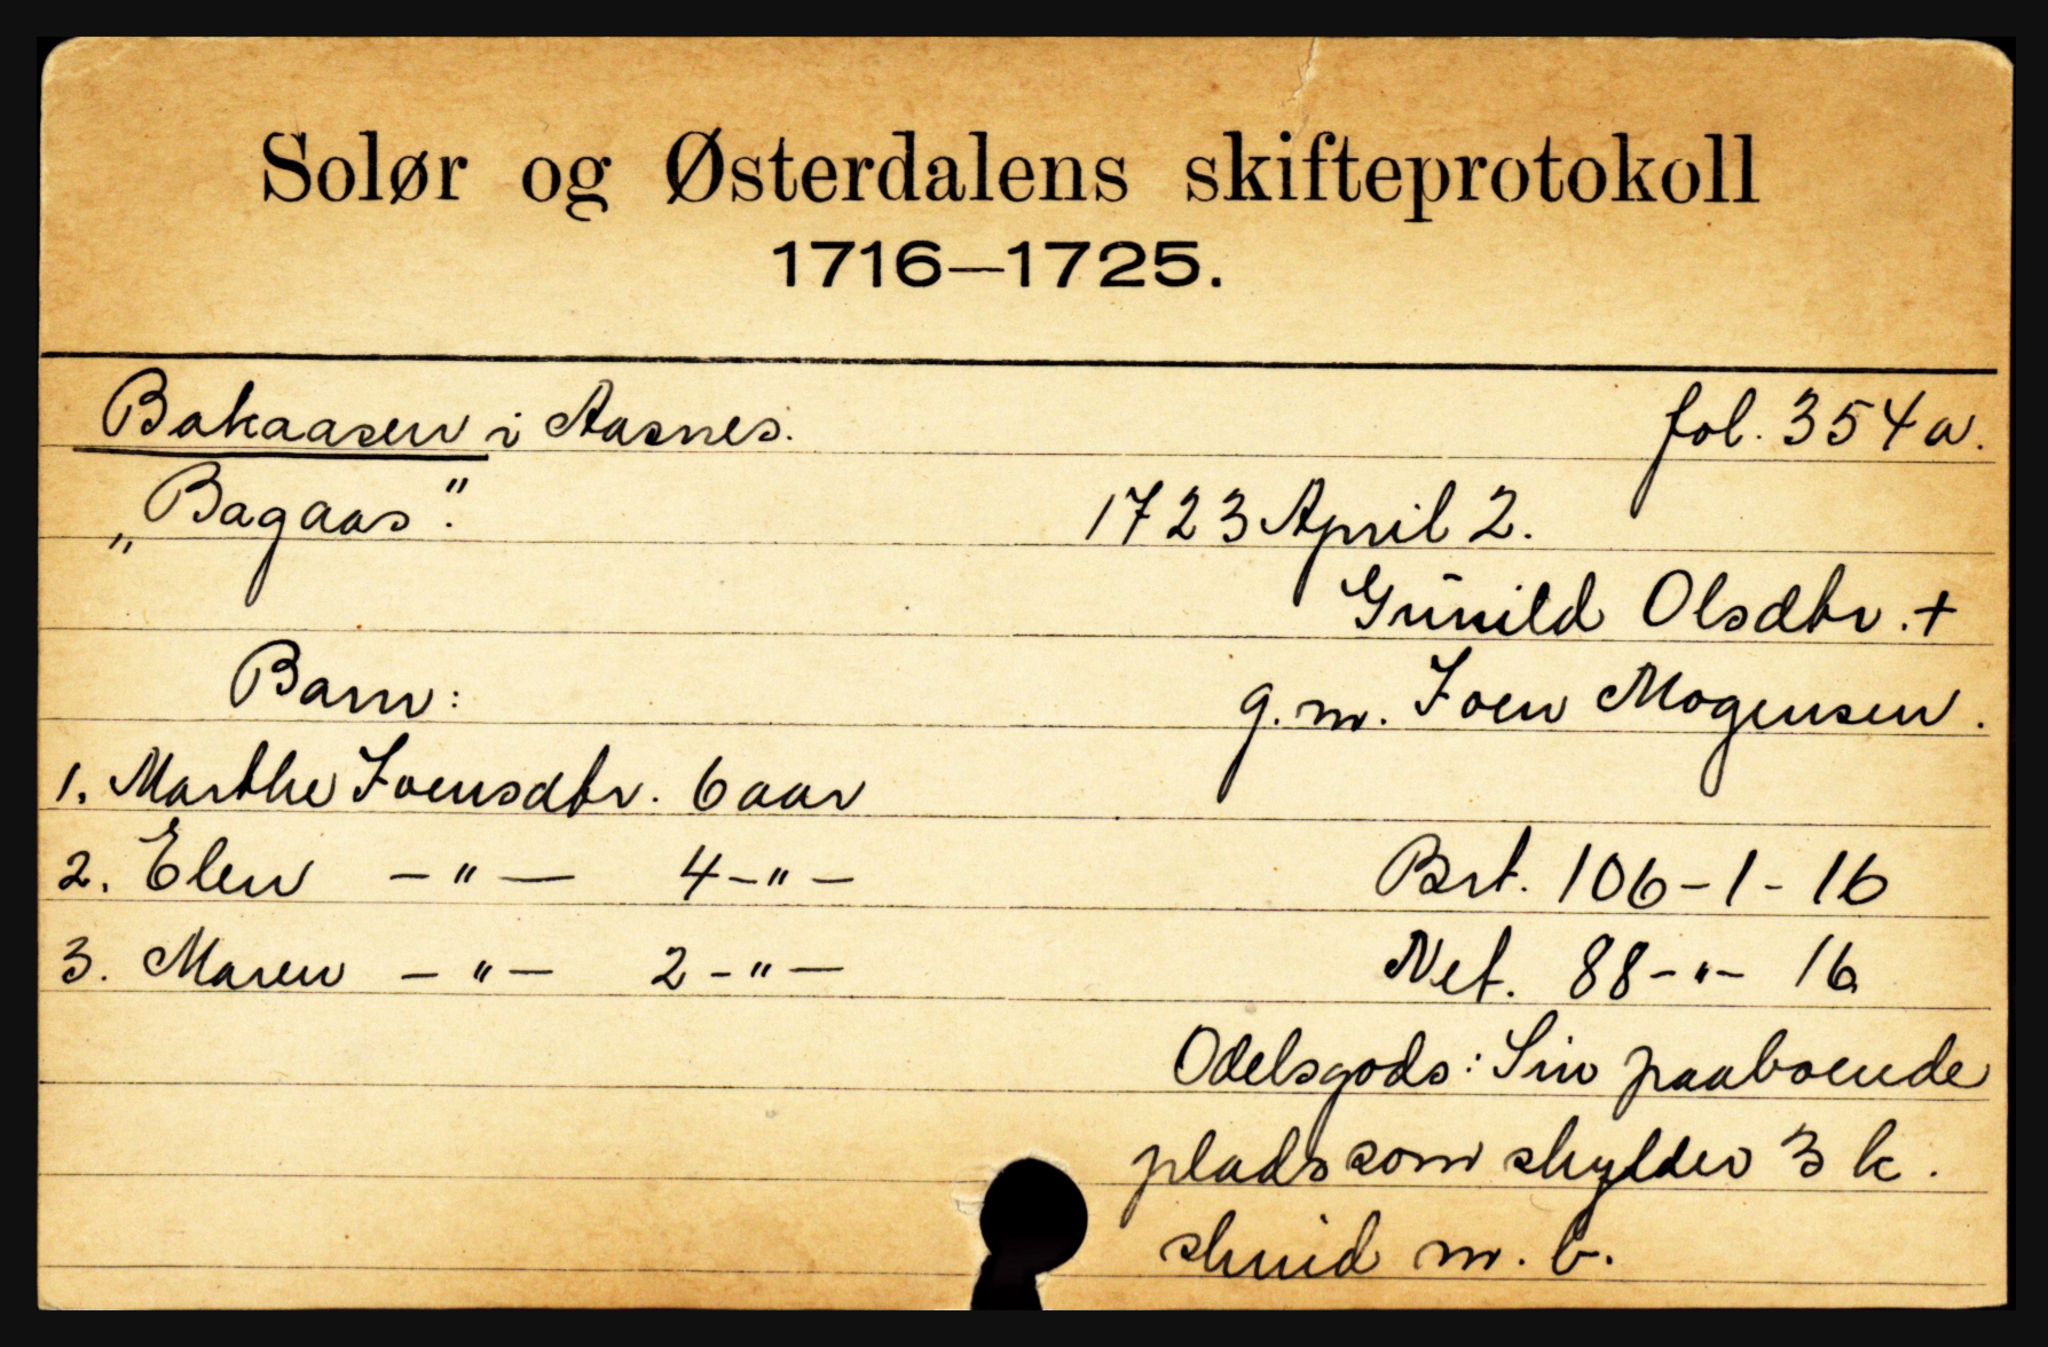 Solør og Østerdalens skifteprotokoll
1716—1725.
Bakaasen i Aasnes. fol. 354a.
„Bagaas". 1723 April 2.
Gun̄ild Olsdtr. +
Barn: g. m. Joen Mogensen.
1. Marthe Joensdtr. 6 aar
2. Elen — " — 4 — " — Brt. 106 - 1 - 16
3. Maren — " — 2 — " — Net. 88 - " - 16
Odelsgods: Sin paaboende
plads som skylder 3 k.
skind m. b.